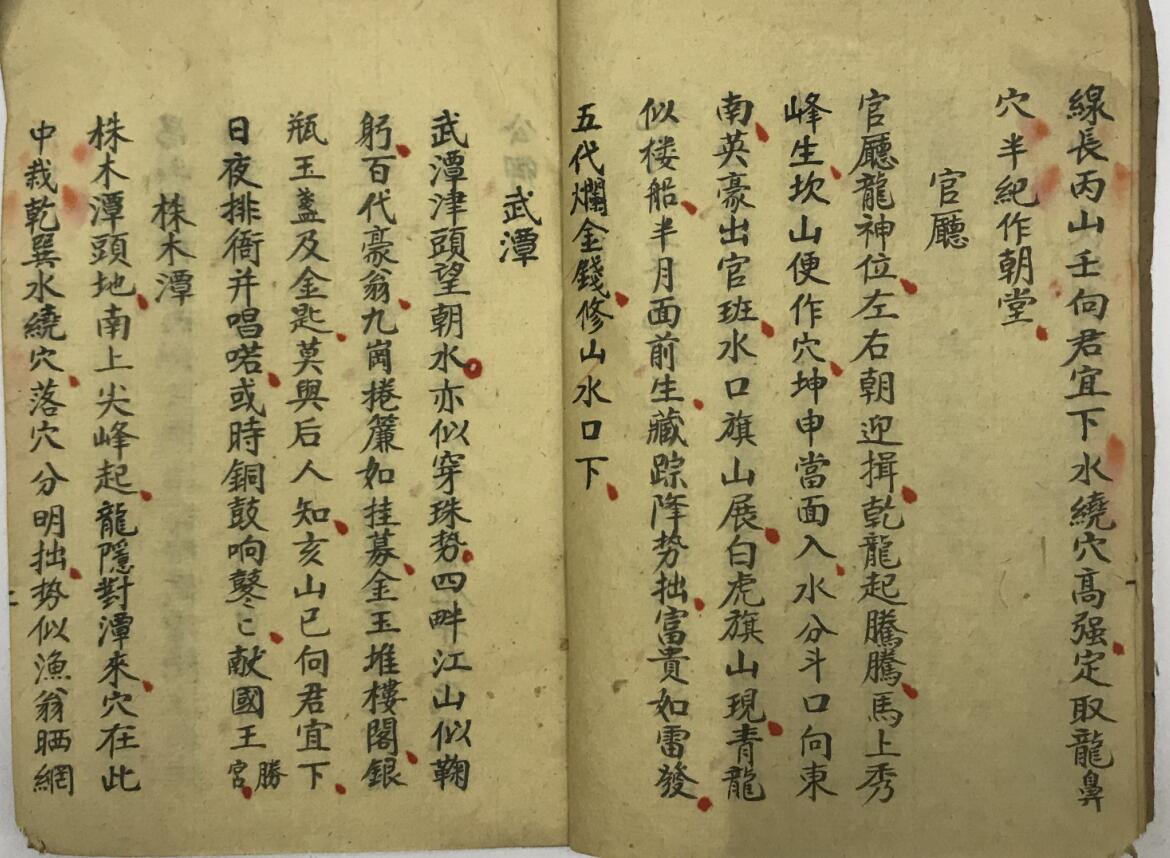 線長丙山壬向君宜下水繞穴高强定取龍鼻
穴半紀作朝堂
官廳
官廳龍神位左右朝迎揖乾龍起騰騰馬上秀
峰生坎山便作穴坤申當面入水分斗口向東
南英豪出官班水口旗山展白虎旗山現青龍
似楼船半月面前生藏踪降势拙富貴如雷發
五代爛金錢修山水口下
武潭
武潭津頭望朝水亦似穿珠势四畔江山似鞠
躬百代豪翁九崗捲簾如挂募金玉堆樓閣銀
瓶玉盞及金匙莫與后人知亥山已向君宜下
日夜排衙并唱喏或時銅鼓响鼕〻献國王勝宫
株木潭
株木潭頭地南上尖峰起龍隱對潭來穴在此
中栽乾巽水繞穴落穴分明拙势似漁翁晒網